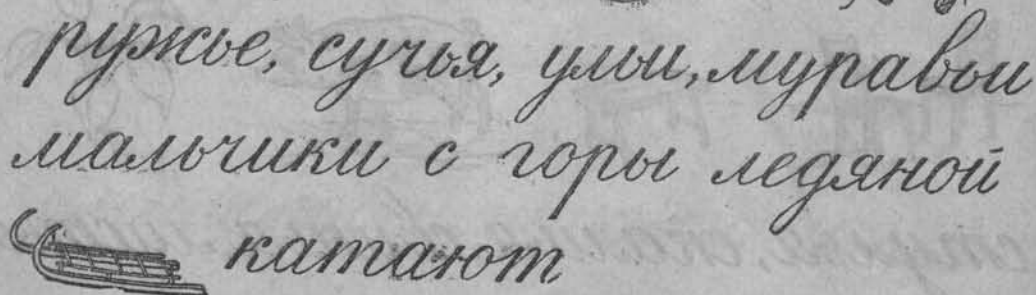 ружье, сучья, ульи, муравьи
мальчики с горы ледяной
катают